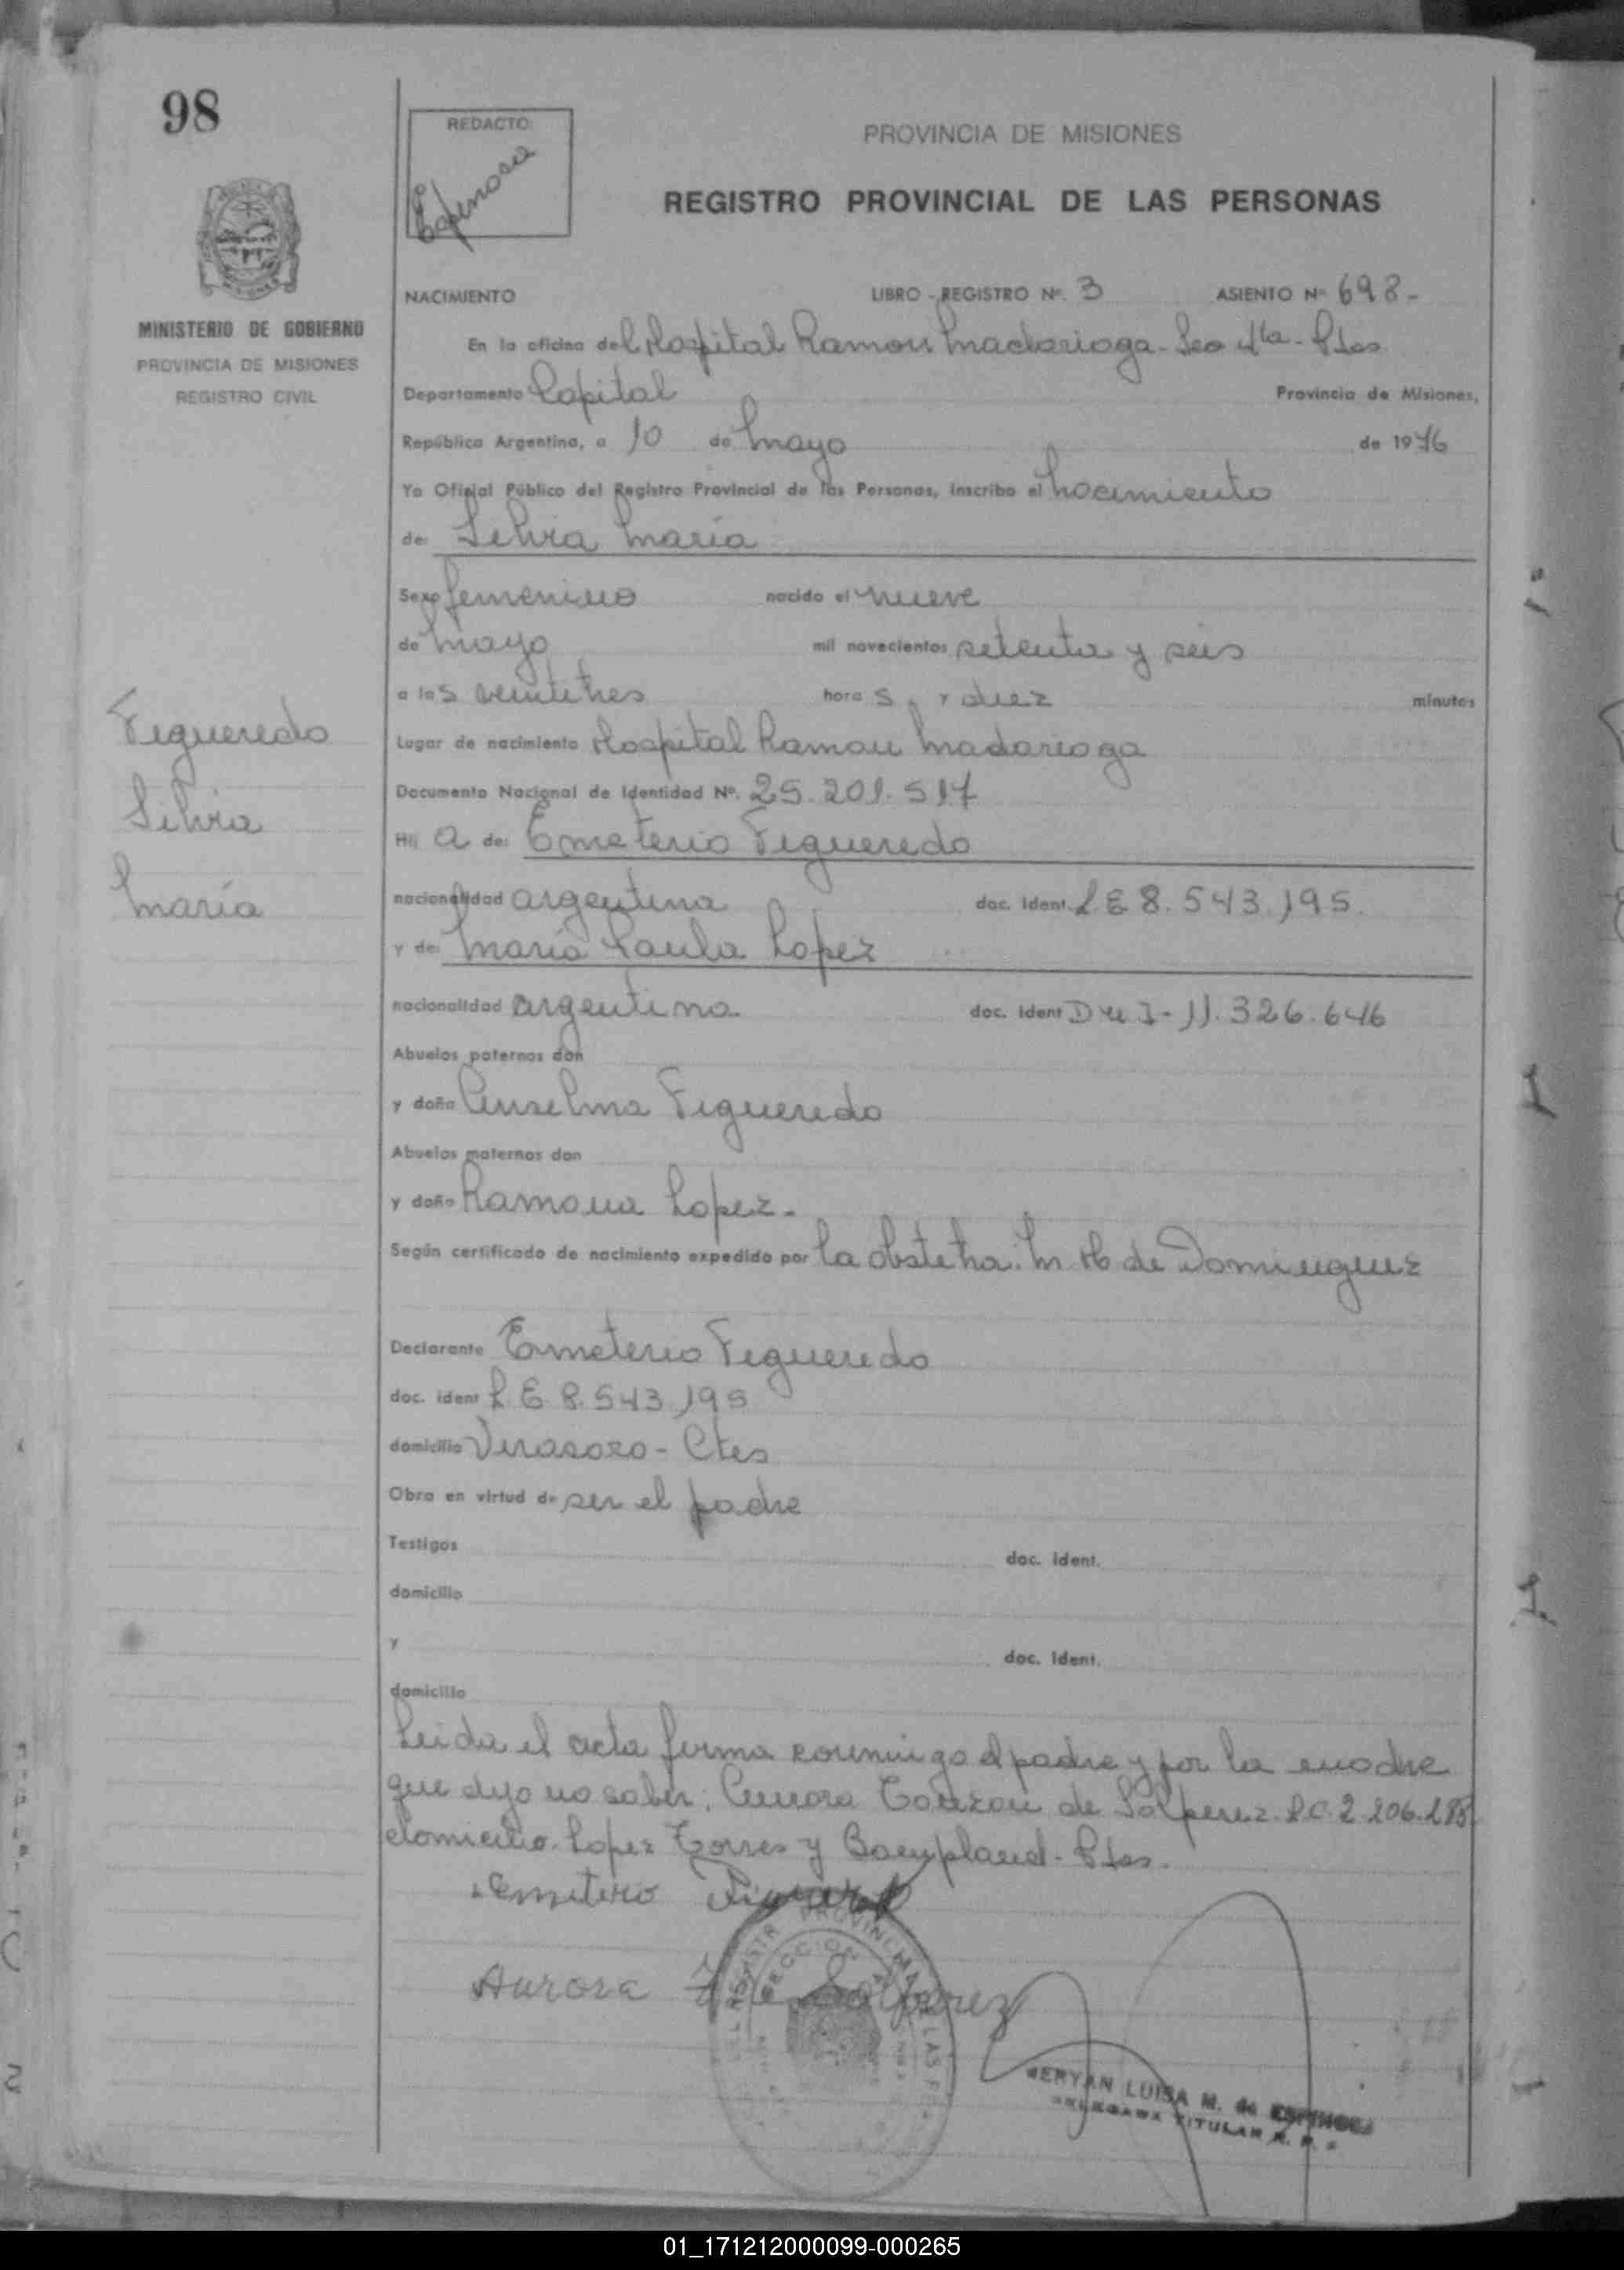 98
REDACTO:
Espinosa
PROVINCIA DE MISIONES
REGISTRO PROVINCIAL DE LAS PERSONAS
MINISTERIO DE GOBIERNO
PROVINCIA DE MISIONES
REGISTRO CIVIL
NACIMIENTO LIBRO - REGISTRO Nº. 3 ASIENTO Nº 698-
En la oficina del Hospital Ramon Madariaga - Sec 4ta - Pdas
Departamento Capital Provincia de Misiones,
República Argentina, a 10 de Mayo de 1976
Yo Oficial Público del Registro Provincial de las Personas, inscribo el nacimiento
de: Silvia María
Sexo femenino nacido el nueve
de Mayo mil novecientos setenta y seis
a las veintetres horas, y diez minutos
Lugar de nacimiento Hospital Ramon Madariaga
Documento Nacional de Identidad Nº. 25.201.517
Hij a de: Emeterio Figueredo
nacionalidad argentina doc. ident. L E 8.543.195.
y de: María Paula Lopez
nacionalidad argentina. doc. ident D N I - 11.326.646
Abuelos paternos don
y doña Anselma Figueredo
Abuelos maternos don
y doña Ramona Lopez.
Según certificado de nacimiento expedido por la obstetra: M. H de Dominguez
Declarante Emeterio Figueredo
doc. ident L E 8.543.195
domicilio Virasoro - Ctes
Obra en virtud de ser el padre
Testigos doc. ident.
domicilio
y doc. ident.
domicilio
Leida el acta firma conmigo el padre y por la madre
que dijo no saber: Aurora de Solperez. L.C. 2.206.
domicilio. Lopez Torres y Bompland - Pdas.
Emeterio
Aurora
LUISA M. de ESPINOSA
TITULAR
Figueredo
Silvia
María
01_171212000099-000265